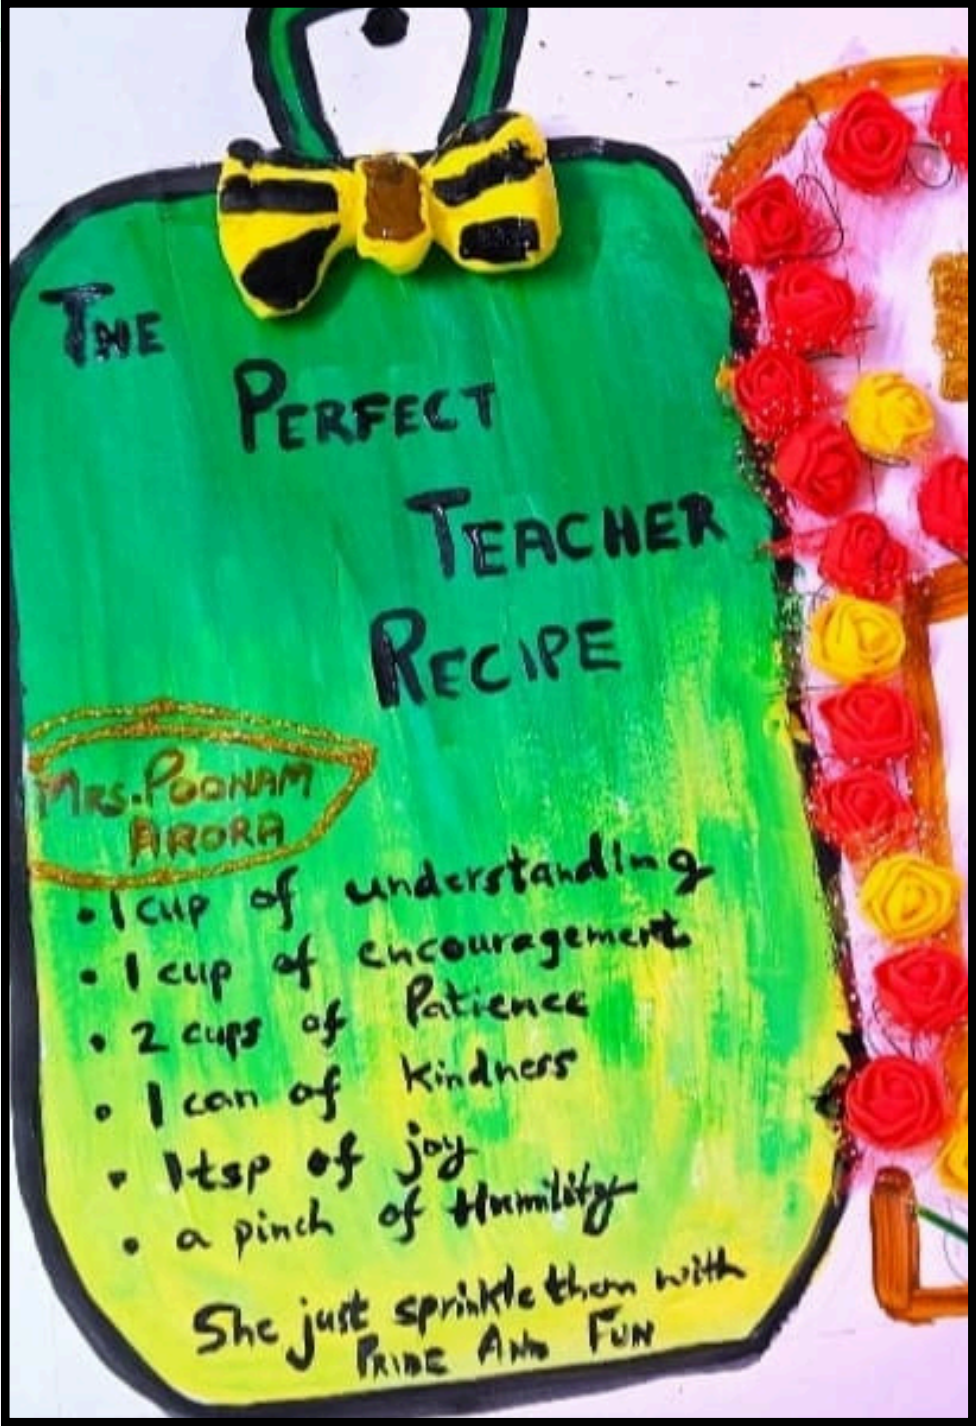 THE
PERFECT
TEACHER
RECIPE
MRS. POONAM
ARORA
• 1 cup of understanding
• 1 cup of encouragement
• 2 cups of Patience
• 1 can of kindness
• 1 tsp of joy
• a pinch of Humility
She just sprinkle them with
PRIDE AND FUN